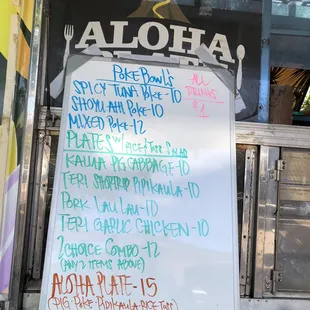 ALOHA
POKE BOWLS
ALL
DRINKS
$1
SPICY TUNA POKE-10
SHOYU AHI POKE-10
MIXED POKE-12
PLATES W/RICE & TOSS SALAD
KALUA PIG CABBAGE-10
TERI SHORTRIB PIPIKAULA-10
PORK LAU LAU-10
TERI GARLIC CHICKEN-10
2 CHOICE COMBO-12
(ANY 2 ITEMS ABOVE)
ALOHA PLATE-15
(PIG-POKE-PIPIKAULA-RICE-TOSS)